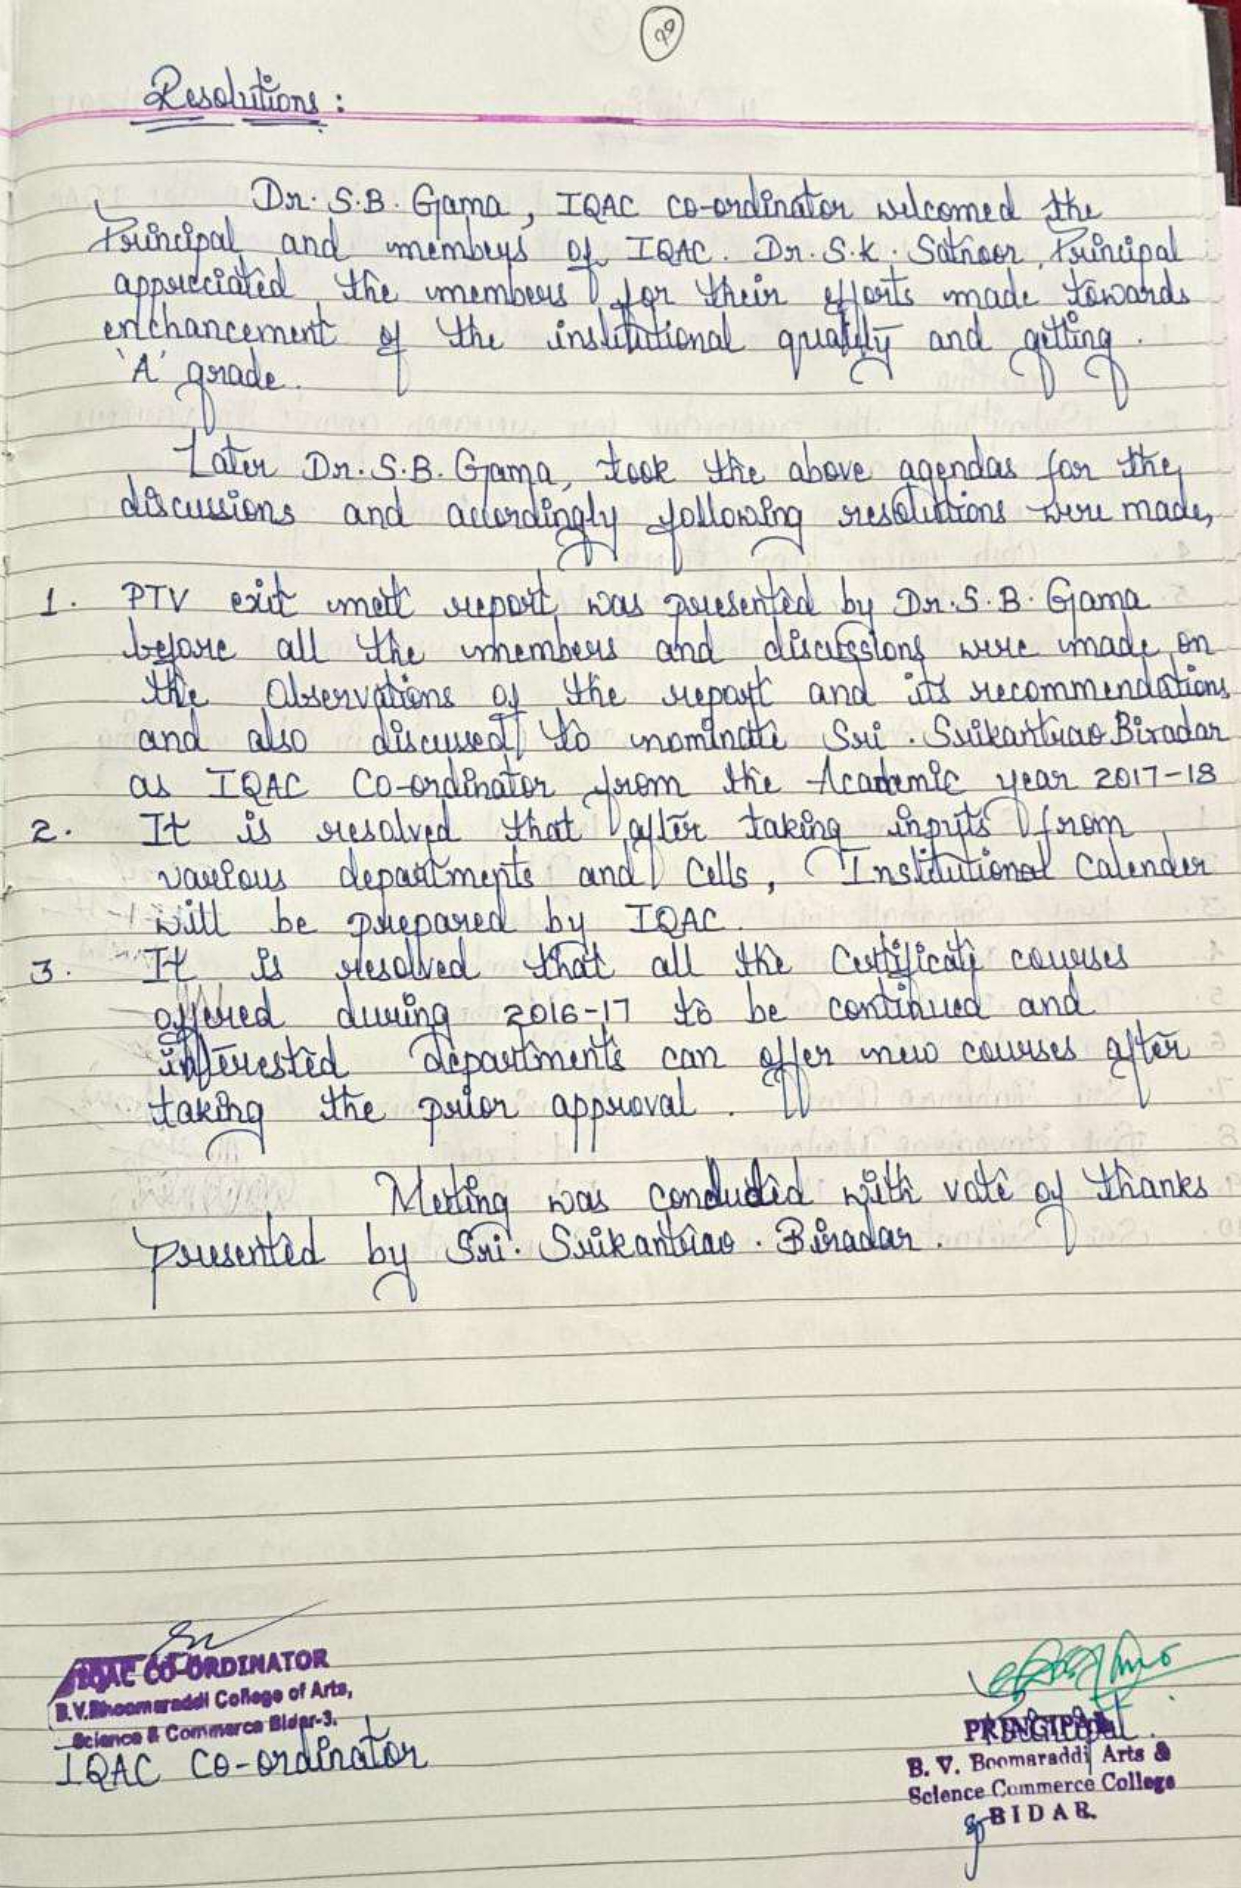 Resolutions :
Dr. S.B. Gama, IQAC co-ordinator welcomed the
Principal and members of IQAC. Dr. S.K. Satnoor, Principal
appreciated the members for their efforts made towards
enchancement of the institutional quality and getting
'A' grade.
Later Dr. S.B. Gama, took the above agendas for the
discussions and accordingly following resolutions were made,
1. PTV exit meet report was presented by Dr. S.B. Gama
before all the members and discussions were made on
the Observations of the report and its recommendations
and also discussed to nominate Sri. Srikantrao Biradar
as IQAC Co-ordinator from the Academic year 2017-18
2. It is resolved that after taking inputs from
various departments and Cells, Institutional Calender
will be prepared by IQAC.
3. It is resolved that all the Certificate courses
offered during 2016-17 to be continued and
interested departments can offer new courses after
taking the prior approval.
Meeting was conducted with vote of thanks
presented by Sri. Srikantrao. Biradar.
IQAC CO-ORDINATOR
B.V.Bhoomaraddi College of Arts,
Science & Commerce Bidar-3.
IQAC Co-ordinator
PRINCIPAL
B. V. Boomaraddi Arts &
Science Commerce College
BIDAR.